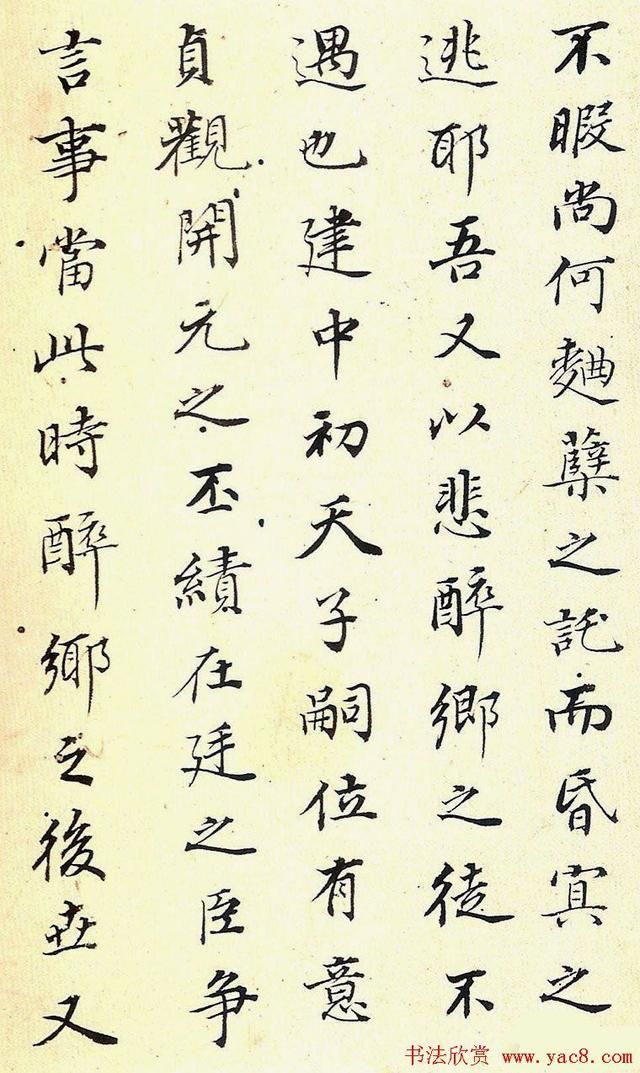 不暇尚何麹糵之託而昏冥之
逃耶吾又以悲醉鄉之徒不
遇也建中初天子嗣位有意
貞觀開元之丕績在廷之臣争
言事當此時醉鄉之後世又
书法欣赏 www.yac8.com